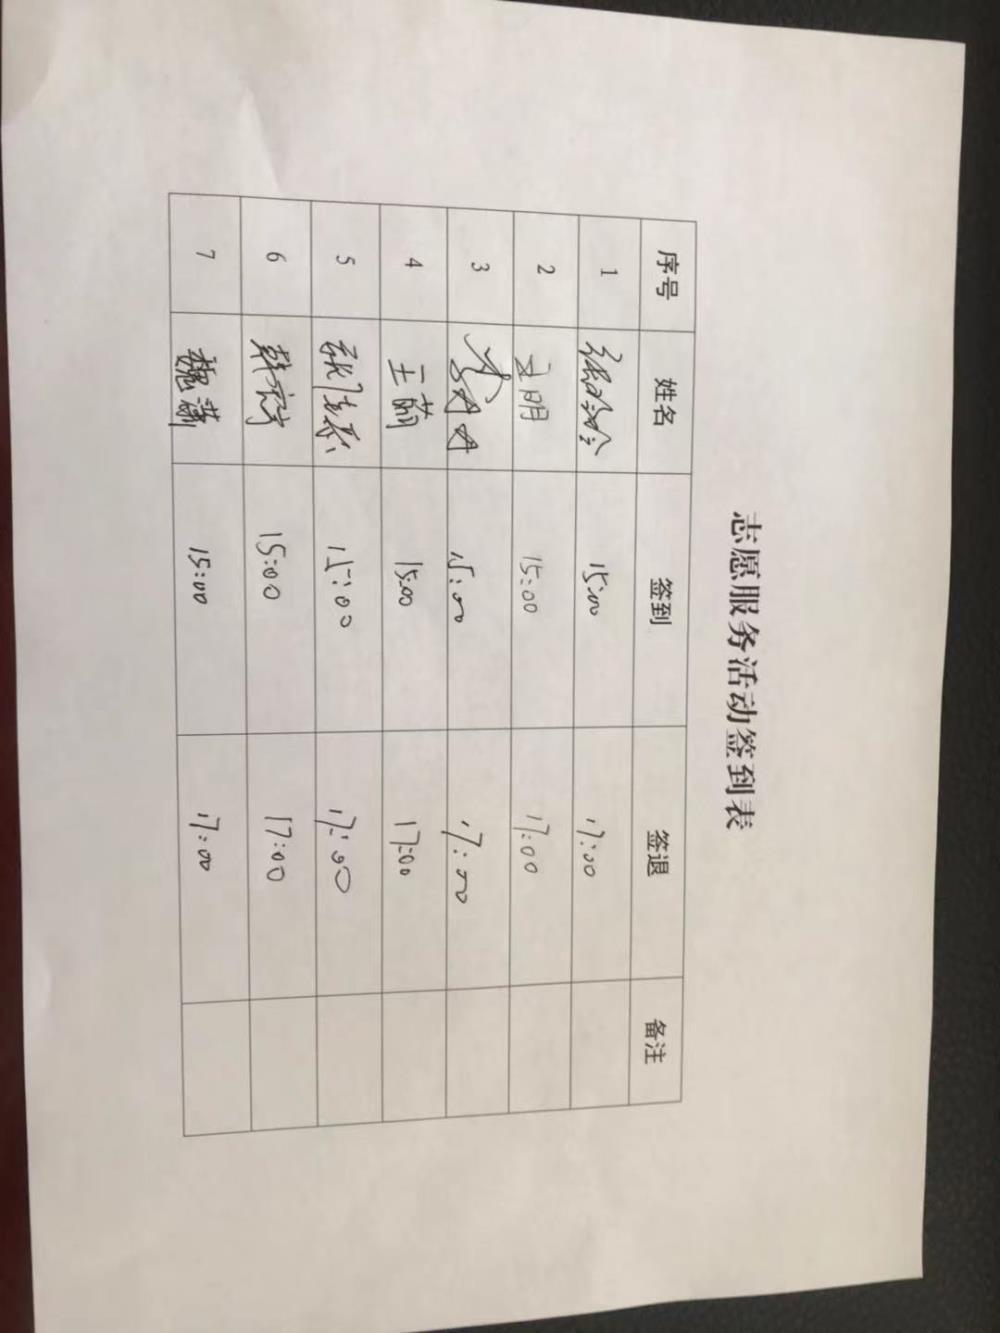 志愿服务活动签到表
序号 姓名 签到 签退 备注
1 15:00 17:00
2 王明 15:00 17:00
3 15:00 17:00
4 王莉 15:00 17:00
5 15:00 17:00
6 韩婷 15:00 17:00
7 魏潇 15:00 17:00